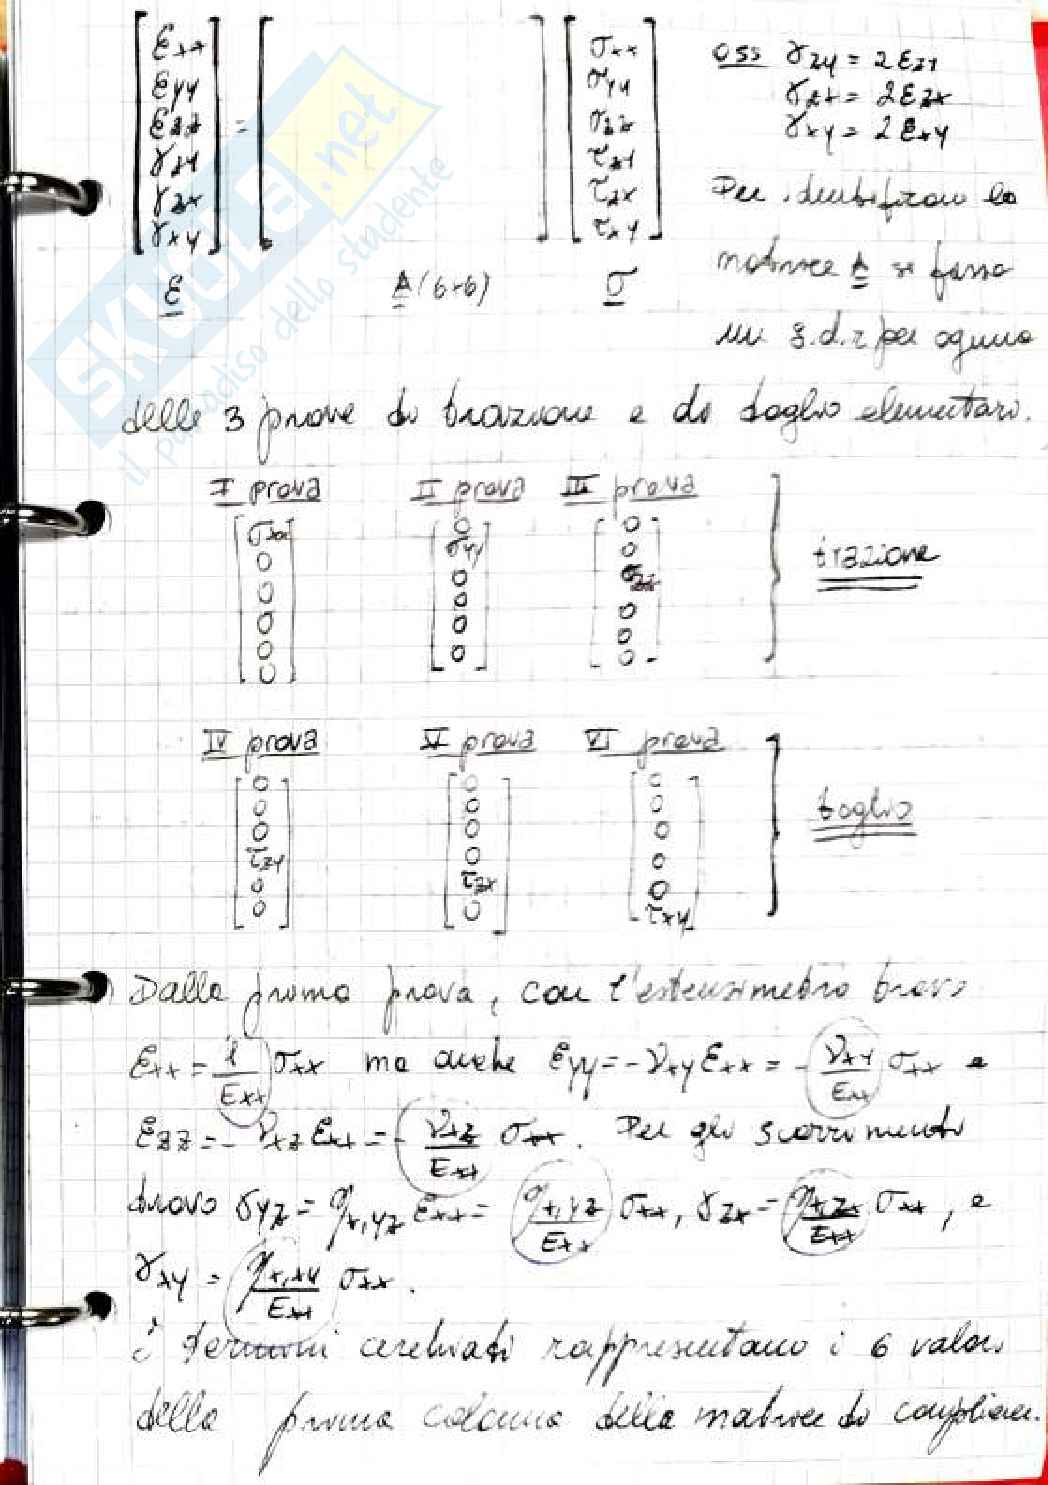 [εxx εyy εzz γzy γzx γxy] = [ ] [σxx σyy σzz τzy τzx τxy]
ε A (6×6) σ
oss γzy = 2εzy
γzx = 2εzx
γxy = 2εxy
Per identificare la
matrice A si fanno
un s.d.r per ognuna
delle 3 prove di trazione e di taglio elementari.
I prova II prova III prova
[σxx 0 0 0 0 0] [0 σyy 0 0 0 0] [0 0 σzz 0 0 0] } trazione
IV prova V prova VI prova
[0 0 0 τzy 0 0] [0 0 0 0 τzx 0] [0 0 0 0 0 τxy] } taglio
Dalla prima prova, con l'estensimetro trovo
εxx = 1/Exx σxx ma anche εyy = -νxy εxx = -νxy/Exx σxx e
εzz = -νxz εxx = -νxz/Exx σxx. Per gli scorrimenti
trovo γyz = ηx,yz εxx = ηx,yz/Exx σxx, γzx = ηx,zx/Exx σxx, e
γxy = ηx,xy/Exx σxx.
i termini cerchiati rappresentano i 6 valori
della prima colonna della matrice di
SKUOLA.net
il paradiso dello studente